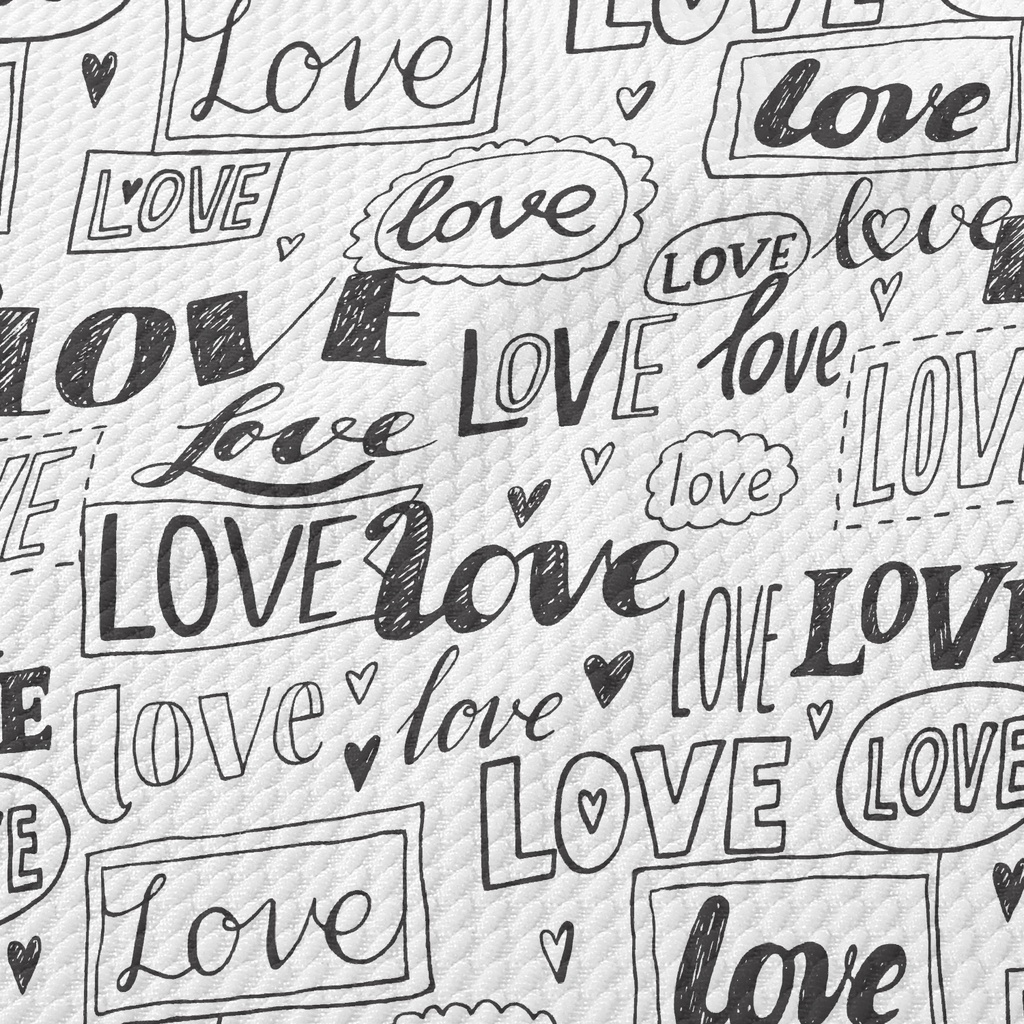 Love
LOVE
love
LOVE
love
LOVE
love
lOVE
LOVE
love
LOV
Love
VE
love
LOVE
love
LOVE
LOVE
E
love
love
LOVE
LOVE
VE
Love
love